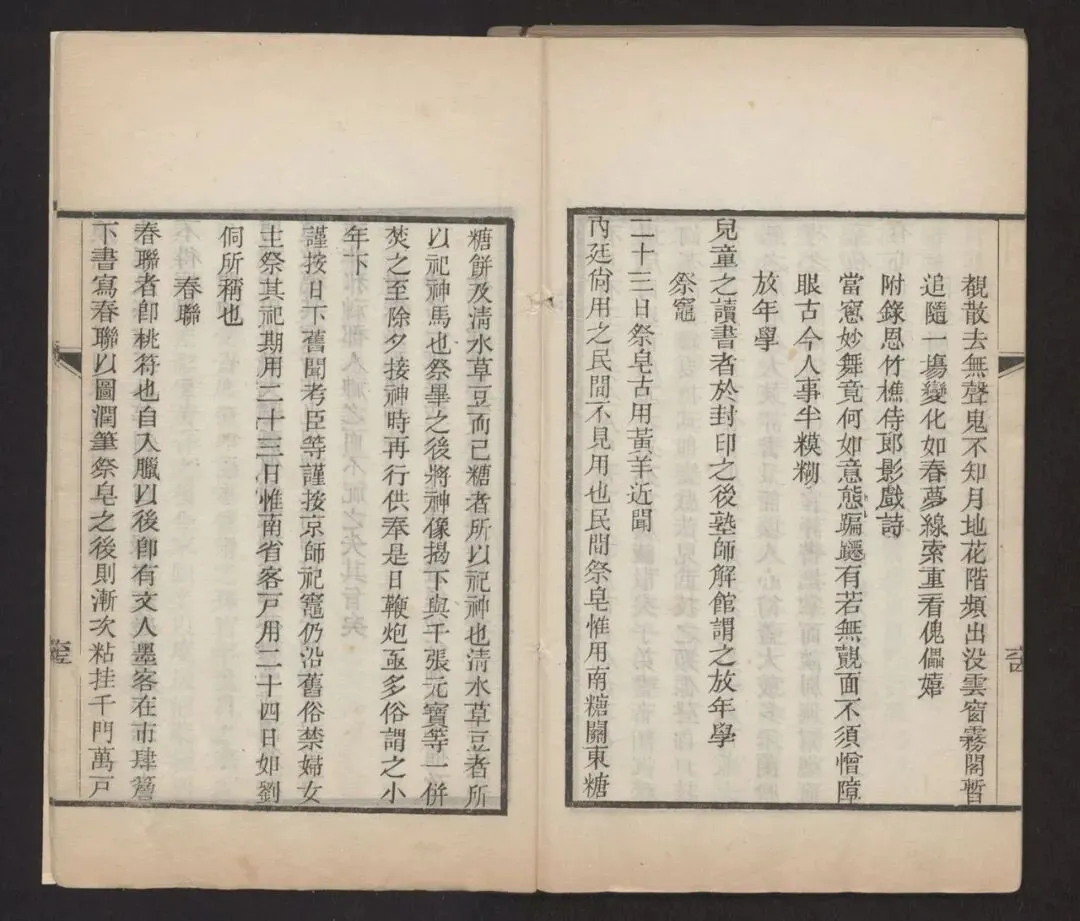 覩散去無聲鬼不知月地花階頻出没雲窗霧閣暫
追隨一塲變化如春夢線索重看傀儡嬉
附錄恩竹樵侍郎影戲詩
當窻妙舞竟何如意態蹁躚有若無覿面不須憎障
眼古今人事半模糊
放年學
兒童之讀書者於封印之後塾師解館謂之放年學
祭竈
二十三日祭皂古用黃羊近聞
內廷尙用之民間不見用也民間祭皂惟用南糖關東糖
糖餅及淸水草豆而已糖者所以祀神也淸水草荳者所
以祀神馬也祭畢之後將神像揭下與千張元寶等一併
焚之至除夕接神時再行供奉是日鞭炮亟多俗謂之小
年下
謹按日下舊聞考臣等謹按京師祀竈仍沿舊俗禁婦女
主祭其祀期用二十三日惟南省客戸用二十四日如劉
侗所稱也
春聯
春聯者卽桃符也自入臘以後卽有文人墨客在市肆簷
下書寫春聯以圖潤筆祭皂之後則漸次粘挂千門萬戸